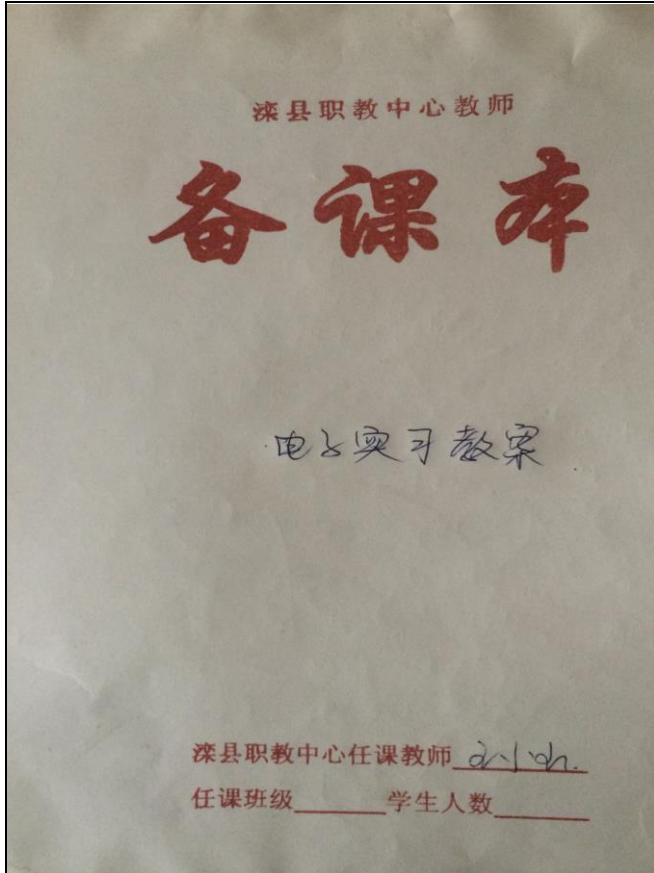 滦县职教中心教师
备课本
电子实习教案
滦县职教中心任课教师
任课班级______学生人数______